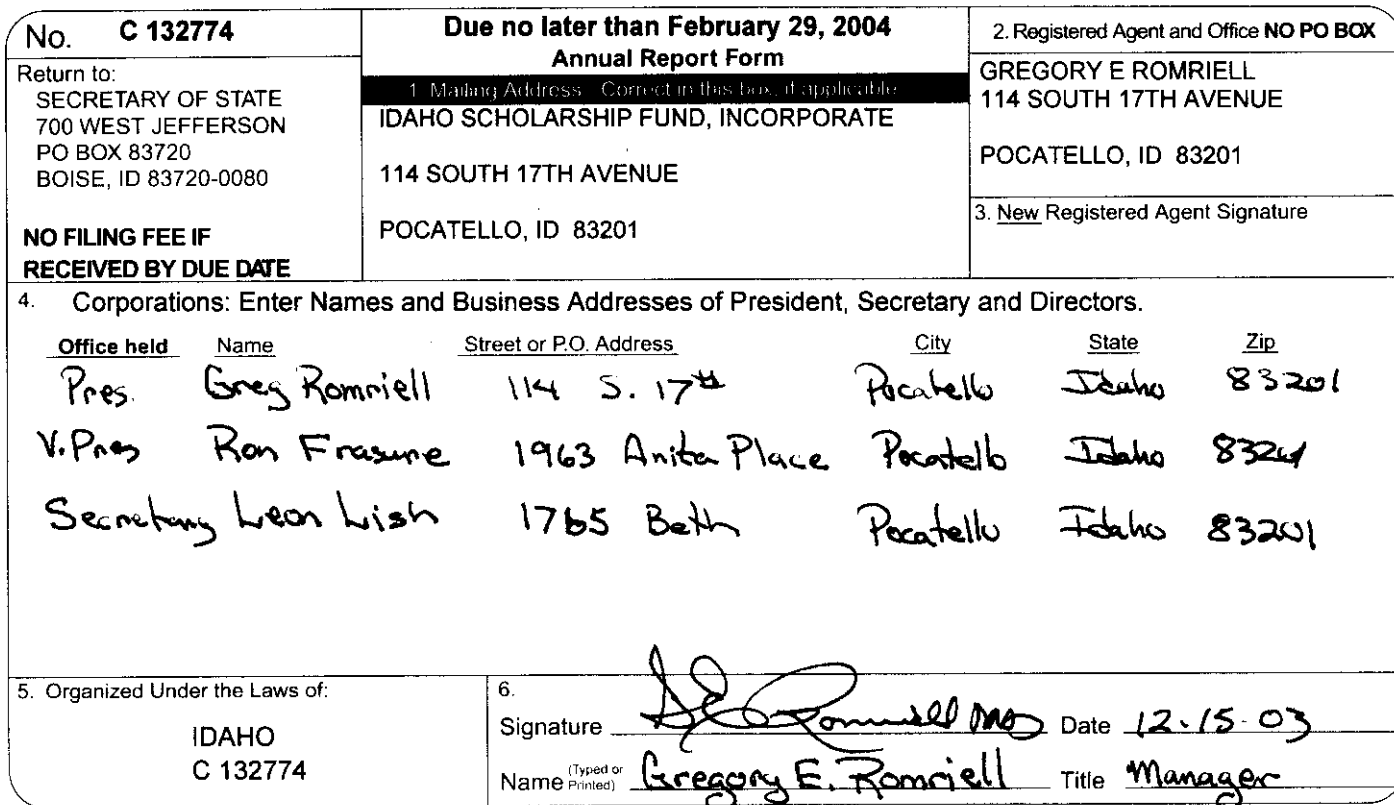 No. C 132774
Return to:
SECRETARY OF STATE
700 WEST JEFFERSON
PO BOX 83720
BOISE, ID 83720-0080
NO FILING FEE IF
RECEIVED BY DUE DATE
Due no later than February 29, 2004
Annual Report Form
1. Mailing Address: Correct in this box, if applicable
IDAHO SCHOLARSHIP FUND, INCORPORATE
114 SOUTH 17TH AVENUE
POCATELLO, ID 83201
2. Registered Agent and Office NO PO BOX
GREGORY E ROMRIELL
114 SOUTH 17TH AVENUE
POCATELLO, ID 83201
3. New Registered Agent Signature
4. Corporations: Enter Names and Business Addresses of President, Secretary and Directors.
Office held Name Street or P.O. Address City State Zip
Pres. Greg Romriell 114 S. 17th Pocatello Idaho 83201
V. Pres Ron Frasure 1963 Anita Place Pocatello Idaho 83201
Secretary Leon Lish 1765 Beth Pocatello Idaho 83201
5. Organized Under the Laws of:
IDAHO
C 132774
6.
Signature Romriell Date 12-15-03
Name (Typed or Printed) Gregory E. Romriell Title Manager